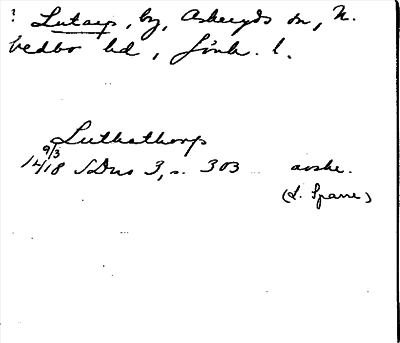 ? Lutarp, by, Askeryds sn, N.
Vedbo hd, Jönk. l.
Luthathorp
9/3
1418 SDns 3, s. 303 avskr.
(L. Spane)